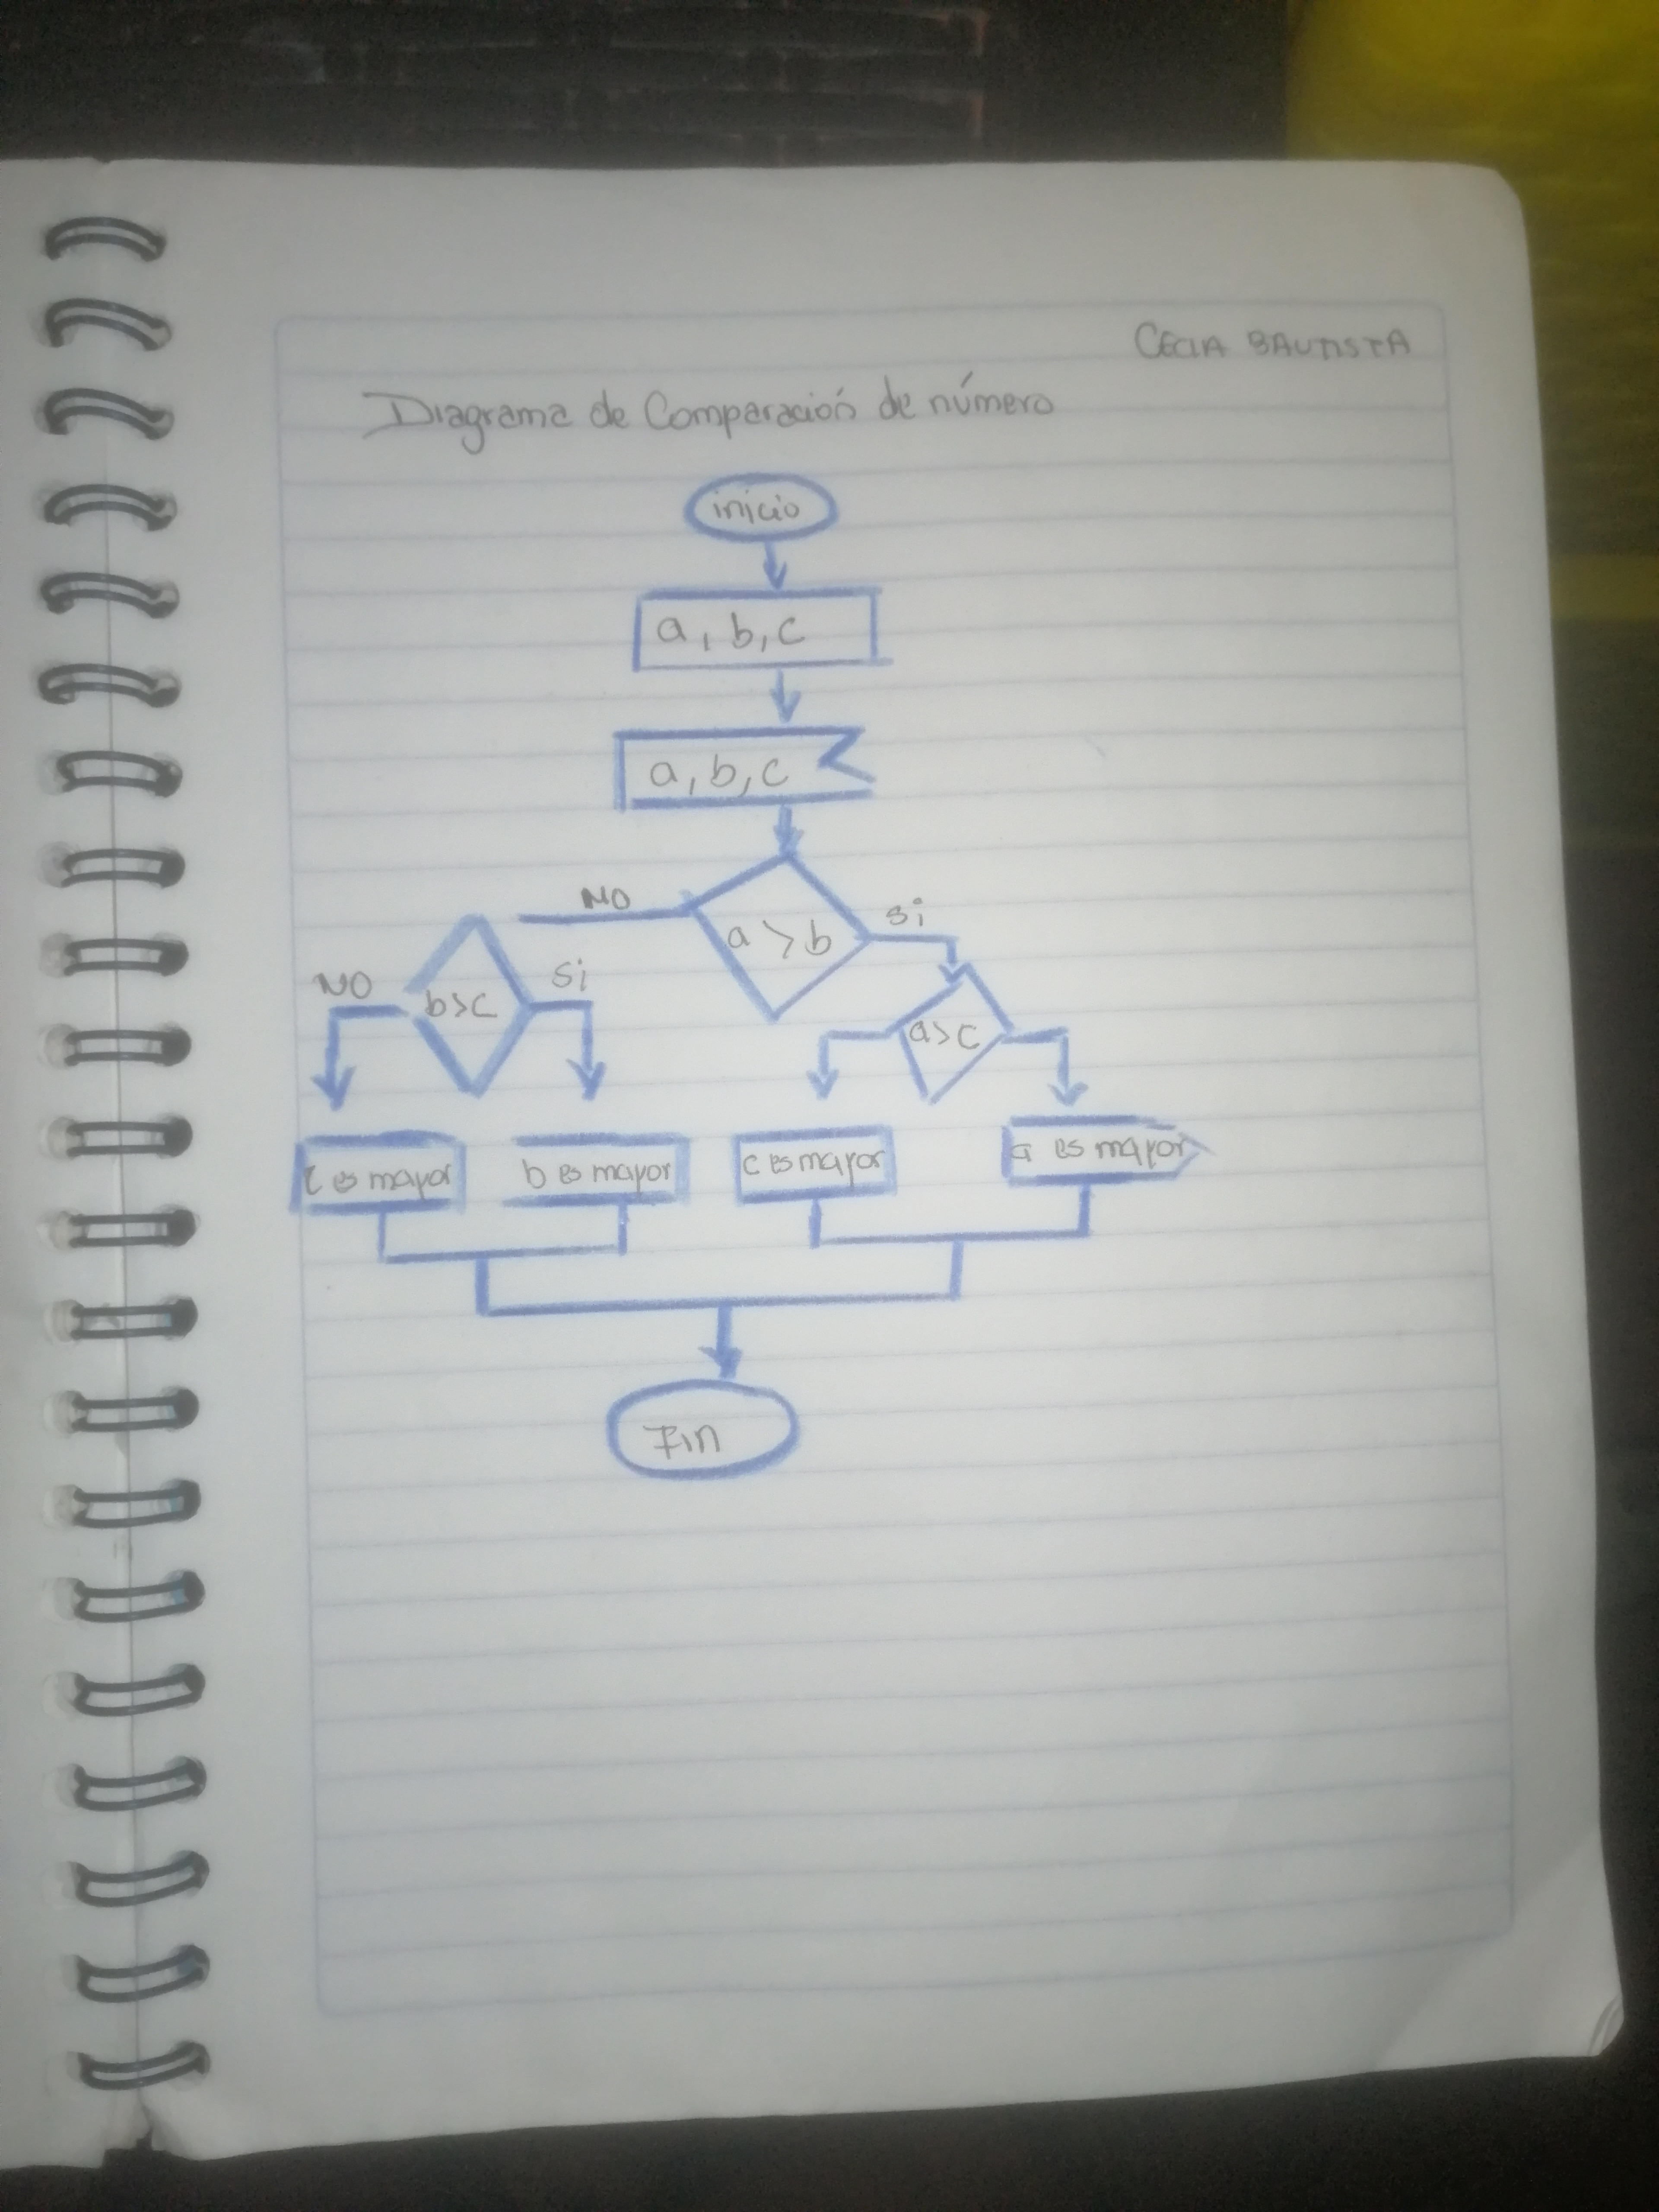 CECIA BAUTISTA
Diagrama de Comparación de número
inicio
a, b, c
a, b, c
NO
a > b
si
NO
b>c
Si
a>c
c es mayor
b es mayor
c es mayor
a es mayor
Fin